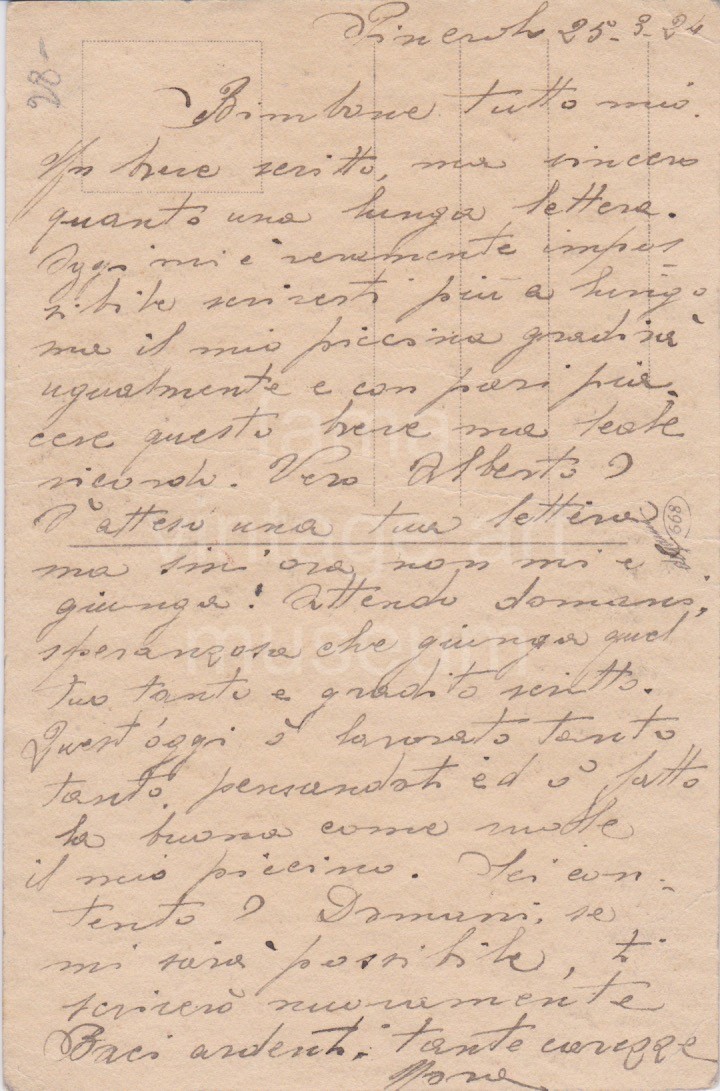 28-
Pinerolo 25-3-24
Bimbone tutto mio.
Un breve scritto, ma sincero
quanto una lunga lettera.
Oggi mi è veramente impos-
sibile scriverti più a lungo
ma il mio piccino gradirà
ugualmente e con pari pia-
cere questo breve ma leale
ricordo. Vero Alberto?
Ò atteso una tua lettera
ma sin'ora non mi è
giunga! Attendo domani,
speranzosa che giunga quel
tuo tanto e gradito scritto.
Quest'oggi ò lavorato tanto
tanto, pensandoti ed ò fatto
la buona come vuole
il mio piccino. Sei con-
tento? Domani, se
mi sarà possibile, ti
scriverò nuovamente
Baci ardenti. tante carezze
899
fama
vintage art
museum